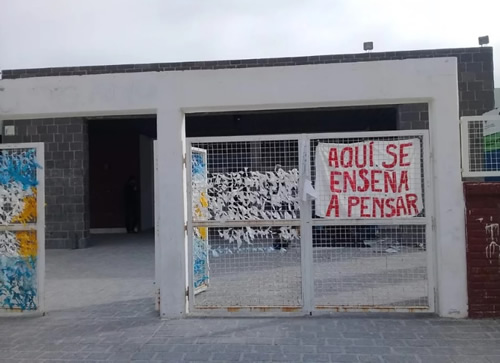 AQUÍ SE
ENSEÑA
A PENSAR